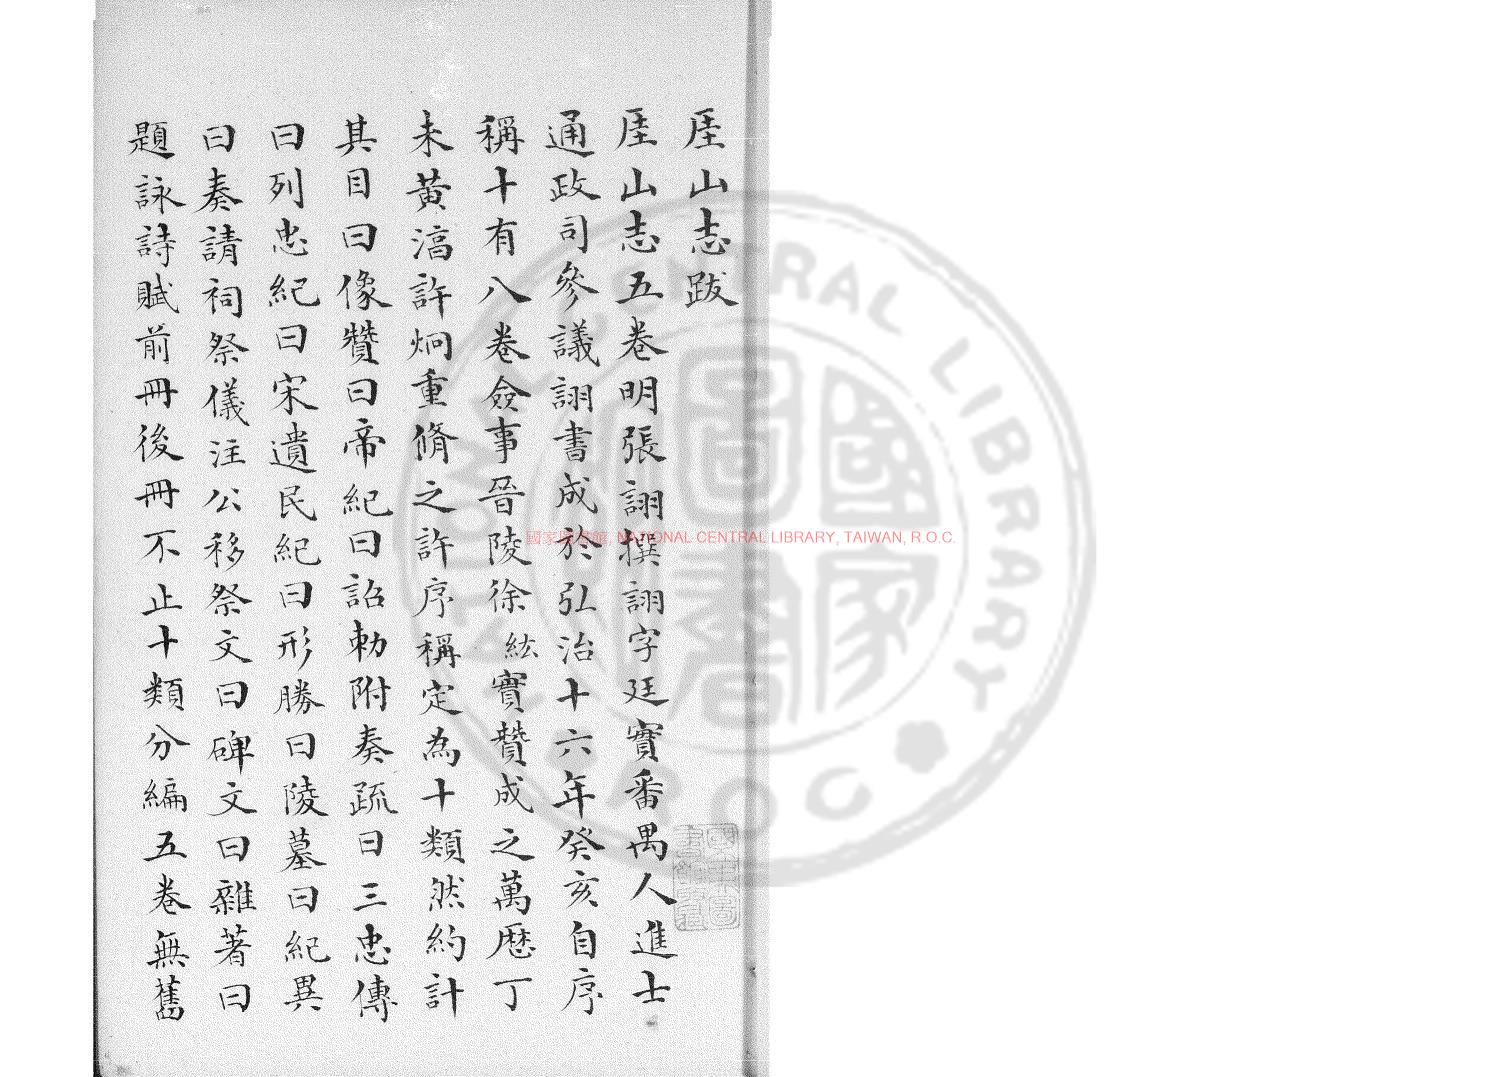 厓山志跋
厓山志五卷明張詡撰詡字廷實番禺人進士
通政司參議詡書成於弘治十六年癸亥自序
稱十有八卷僉事晉陵徐紘實贊成之萬厯丁
未黃淓許炯重脩之許序稱定為十類然約計
其目曰像贊曰帝紀曰詔勅附奏疏曰三忠傳
曰列忠紀曰宋遺民紀曰形勝曰陵墓曰紀異
曰奏請祠祭儀注公移祭文曰碑文曰雜著曰
題詠詩賦前冊後冊不止十類分編五卷無舊
國家圖書館, NATIONAL CENTRAL LIBRARY, TAIWAN, R.O.C.
NATIONAL CENTRAL LIBRARY R O C
國家圖書